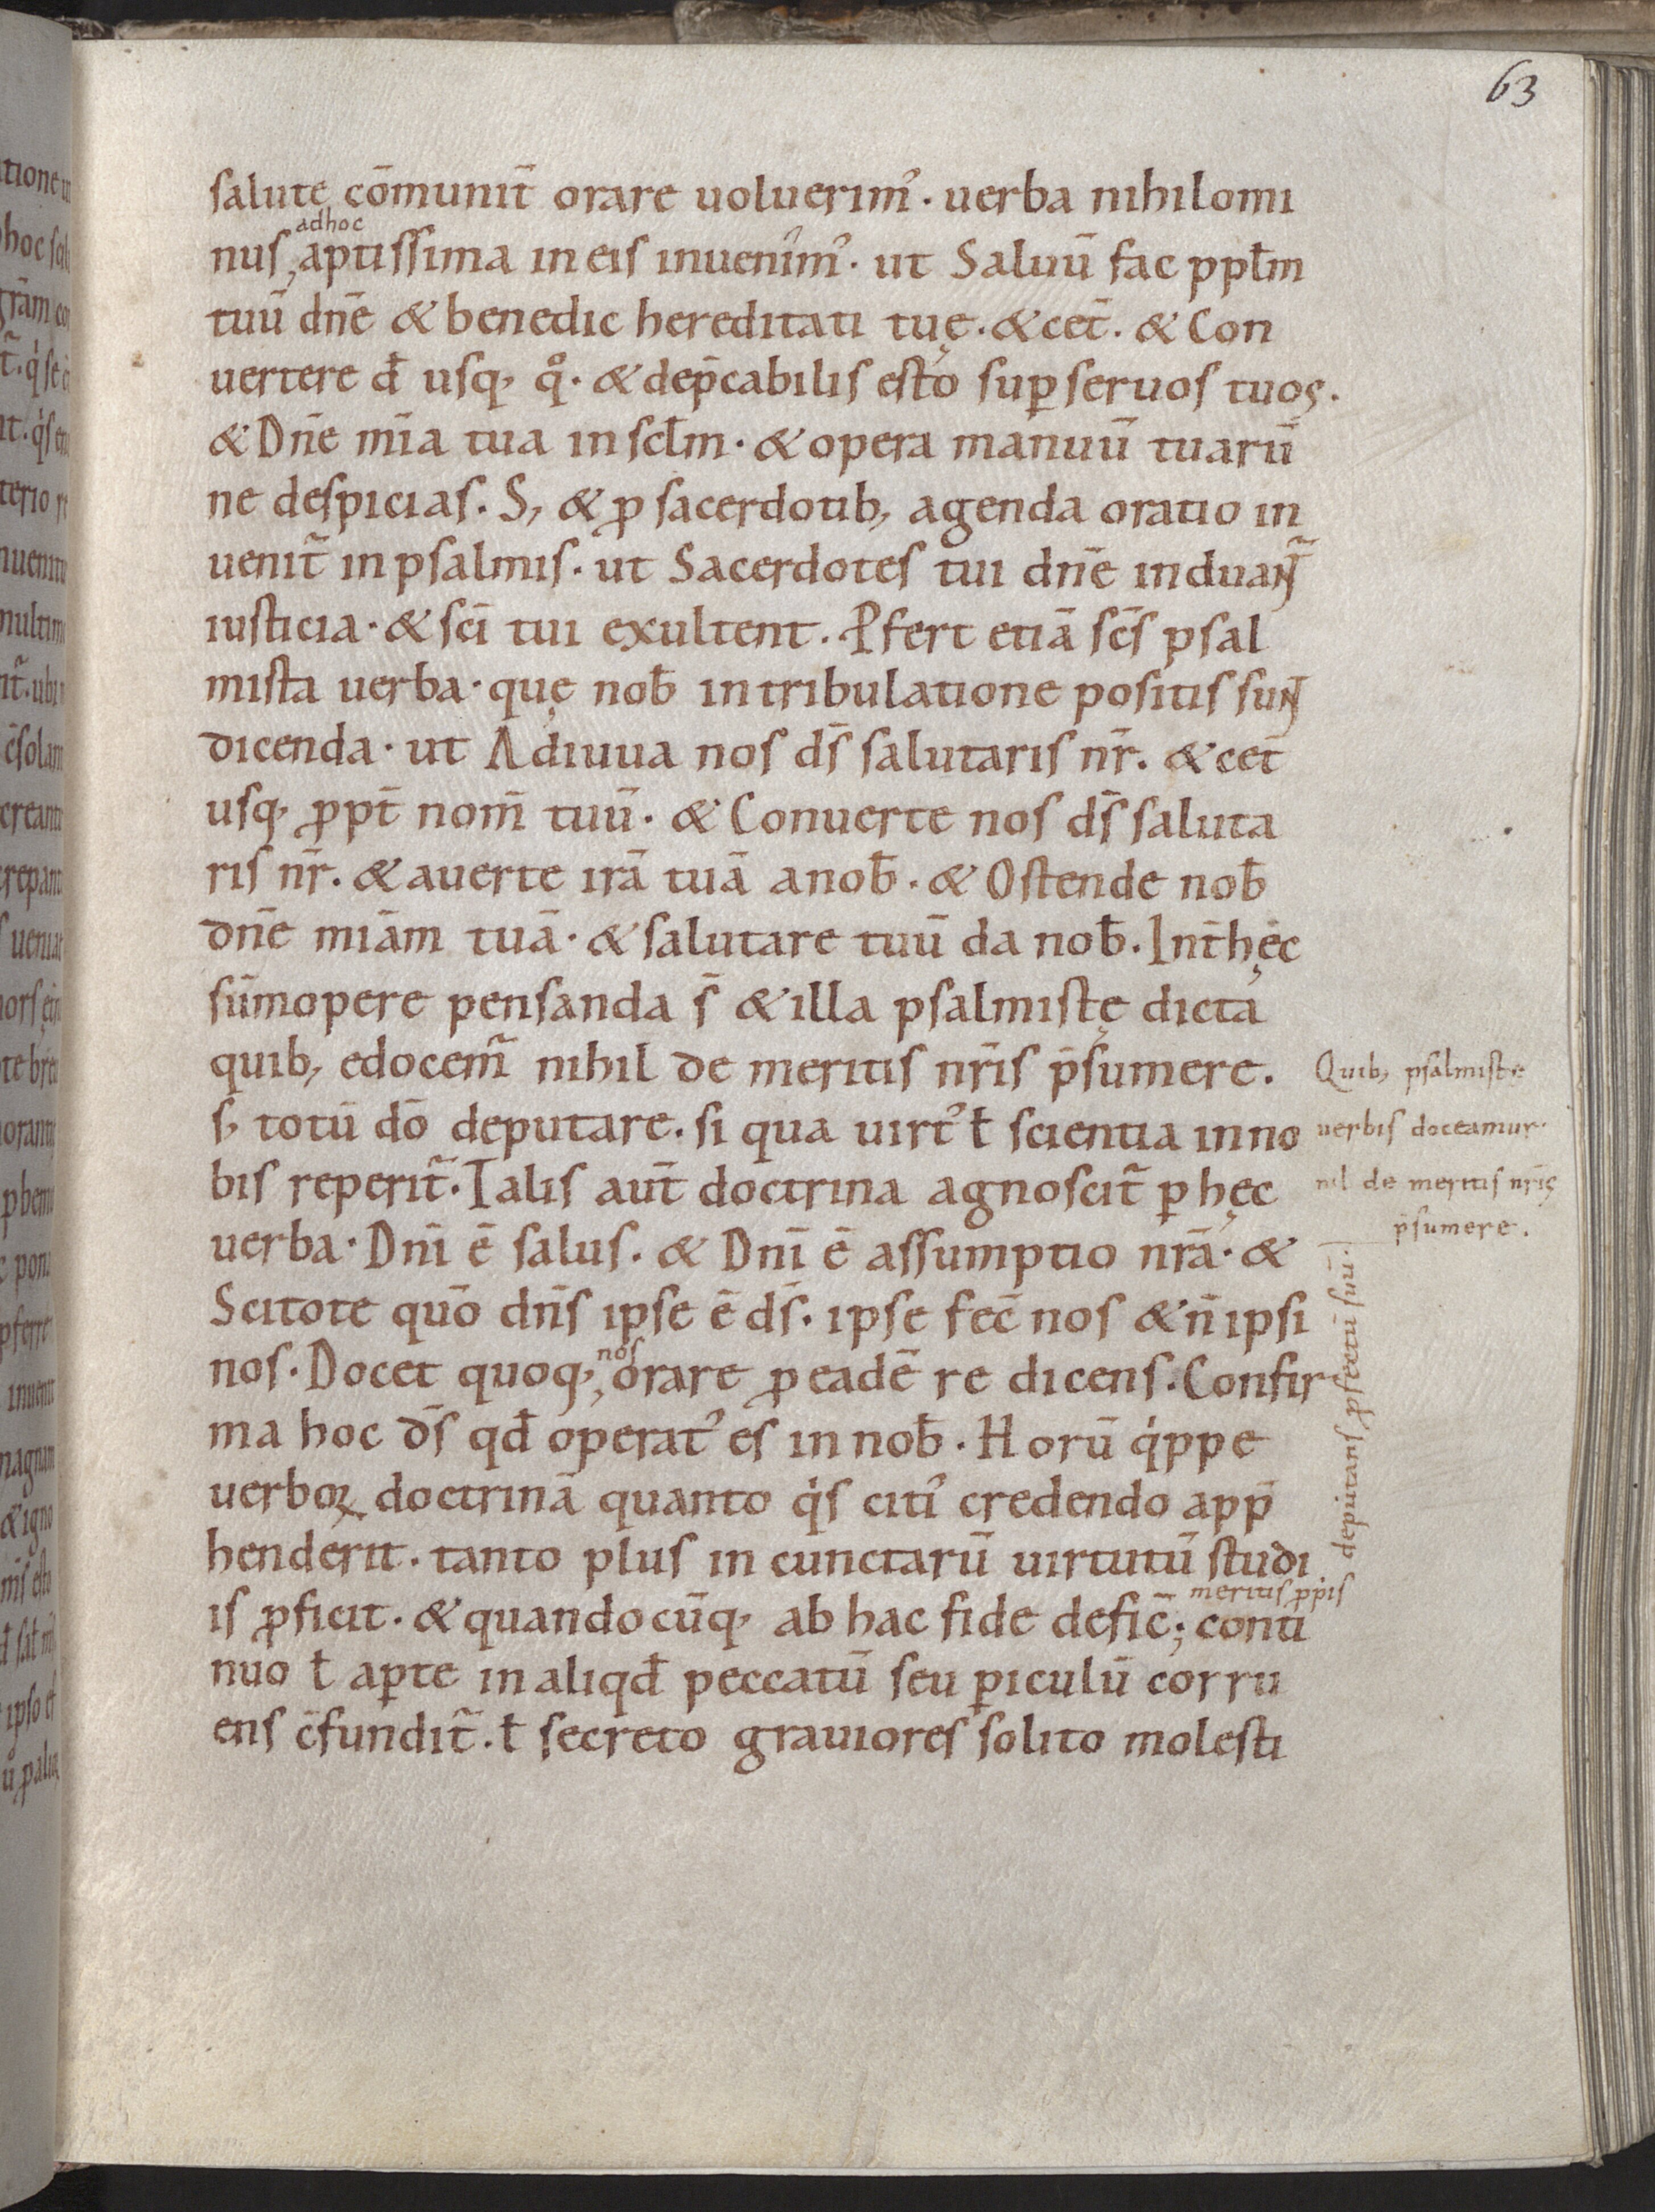 63
salute cōmunit̄ orare uoluerim᾿. uerba nihilomi
adhoc
nus, aptissima in eis inuenim᾿. ut Saluū fac ppl̄m
tuū dn̄e & benedic hereditati tuę. & cet̄. & Con
uertere d̄ usq, q̊. & dep̄cabilis esto sup̱ seruos tuos.
& Dn̄e mīa tua in scl̄m. & opera manuū tuarū
ne despicias. S; & ꝓ sacerdotib; agenda oratio in
uenit᷑ in psalmis. ut Sacerdotes tui dn̄e induant᷑
iusticia. & sc̄i tui exultent. Ꝓfert etiā sc̄s psal
mista uerba. quę nob̄ in tribulatione positis sunt
dicenda. ut Adiuua nos ds̄ salutaris nr̄. & cet̄
usq, ꝓpt̄ nom̄ tuū. & Conuerte nos ds̄ saluta
ris nr̄. & auerte irā tuā a nob̄. & Ostende nob̄
dn̄e miām tuā. & salutare tuū da nob̄. Int̄ hęc
sūmopere pensanda s̄ & illa psalmistę dicta
quib; edocem᷑ nihil de meritis nr̄is p̄sumere.
s; totū dō deputare. si qua uirt᾿ ł scientia in no
bis reperit᷑. Talis aut̄ doctrina agnoscit᷑ ꝑ hęc
uerba. Dn̄i ē salus. & Dn̄i ē assumptio nr̄a. &
Scitote quō dn̄s ipse ē ds̄. ipse fec̄ nos & n̄ ipsi
nos
nos. Docet quoq, orare ꝓ eadē re dicens. Confir
ma hoc ds̄ qd̄ operat᾿ es in nob̄. Horū q̇ppe
uerboꝝ doctrinā quanto q̇s citi᾿ credendo app̄
henderit. tanto plus in cunctarū uirtutū studi
meritis ꝓpis
is ꝓficit. & quandocūq, ab hac fide defic̄; conti
nuo ł aꝑte in aliqd̄ peccatū seu ꝑiculū corru
ens c̄fundit᷑. ł secreto grauiores solito molesti
Quib; psalmistę
uerbis doceamur
nil de meritis nr̄is
p̄sumere.
deputans ꝓfectū suū.